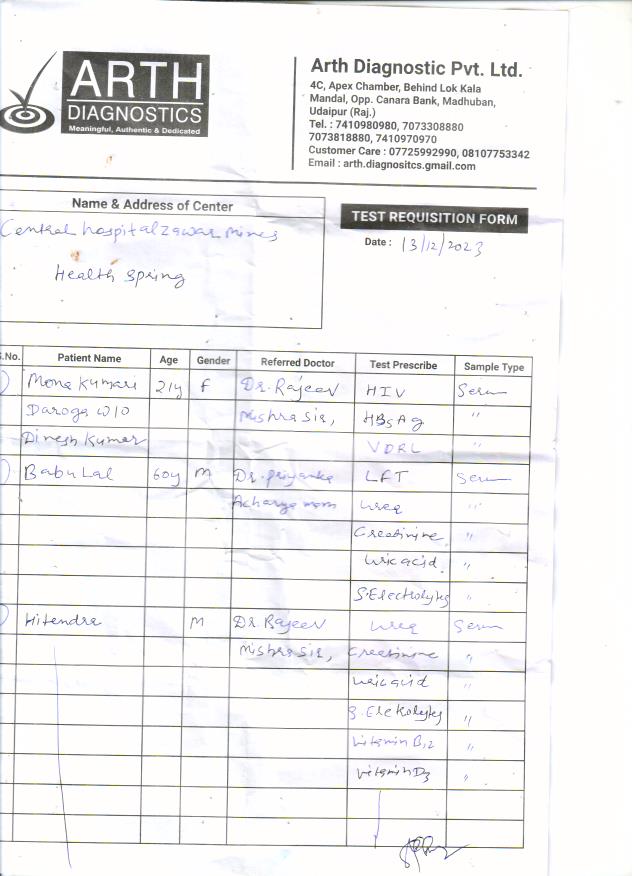 ARTH
DIAGNOSTICS
Meaningful, Authentic & Dedicated
Arth Diagnostic Pvt. Ltd.
4C, Apex Chamber, Behind Lok Kala
Mandal, Opp. Canara Bank, Madhuban,
Udaipur (Raj.)
Tel. : 7410980980, 7073308880
7073818880, 7410970970
Customer Care : 07725992990, 08107753342
Email : arth.diagnositcs.gmail.com
Name & Address of Center
Central hospital zawar mines
Health Spring
TEST REQUISITION FORM
Date : 13/12/2023
S.No. Patient Name Age Gender Referred Doctor Test Prescribe Sample Type
Mona Kumari 21y F Dr. Rajeev HIV Serum
Daroga W/O Mishra Sir, HBsAg "
Dinesh Kumar VDRL "
Babu Lal 60y M Dr. Priyanka LFT Serum
Acharya mam urea "
Creatinine "
uric acid "
S. Electrolytes "
Hitendra M Dr. Rajeev urea Serum
Mishra Sir, Creatinine "
uric acid "
S. Elektolytes "
Vitamin B12 "
Vitamin D3 "